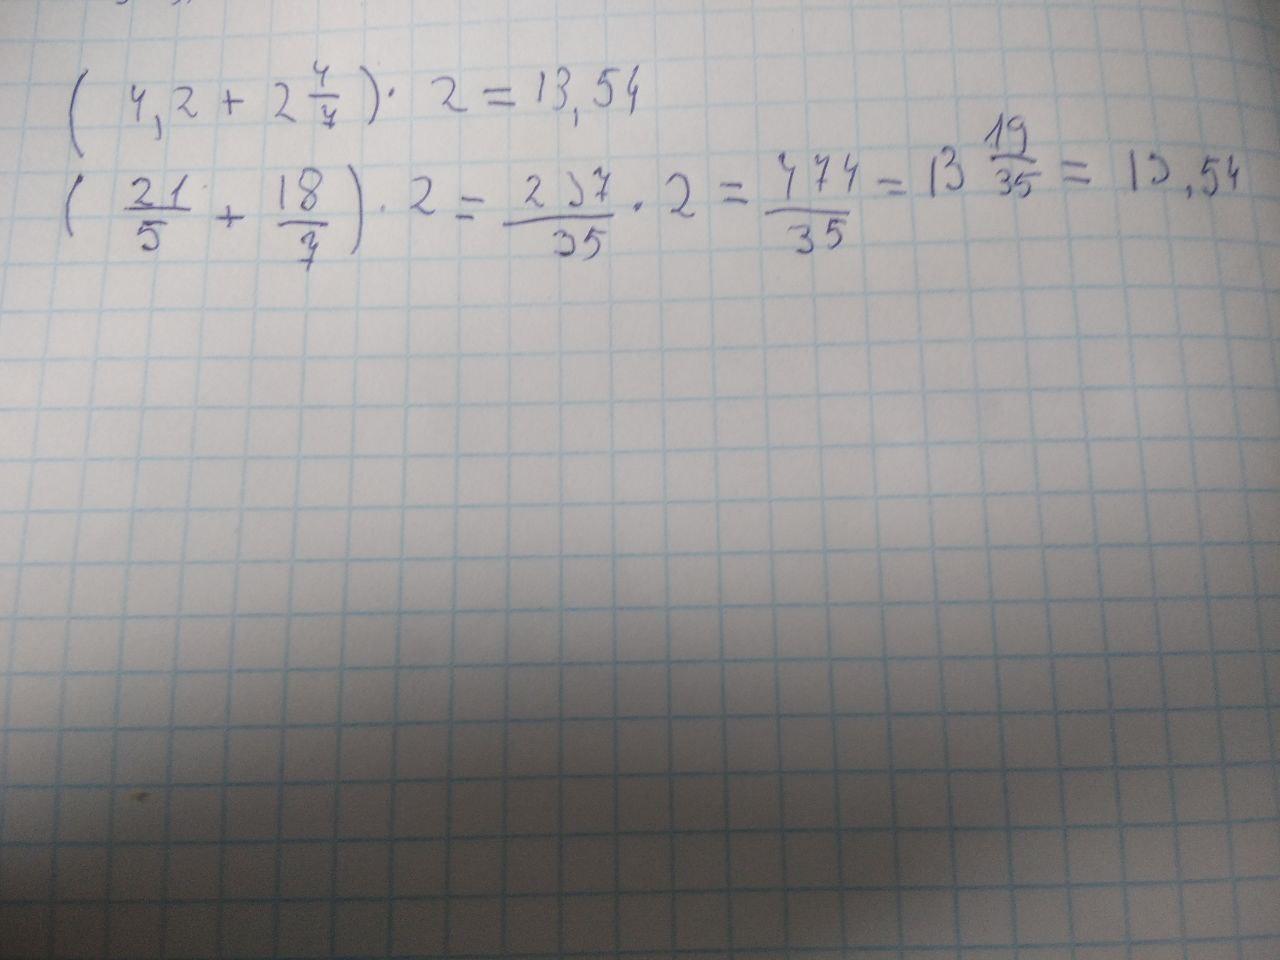 (4,2 + 2 4/7) · 2 = 13,54
(21/5 + 18/7) · 2 = 237/35 · 2 = 474/35 = 13 19/35 = 13,54